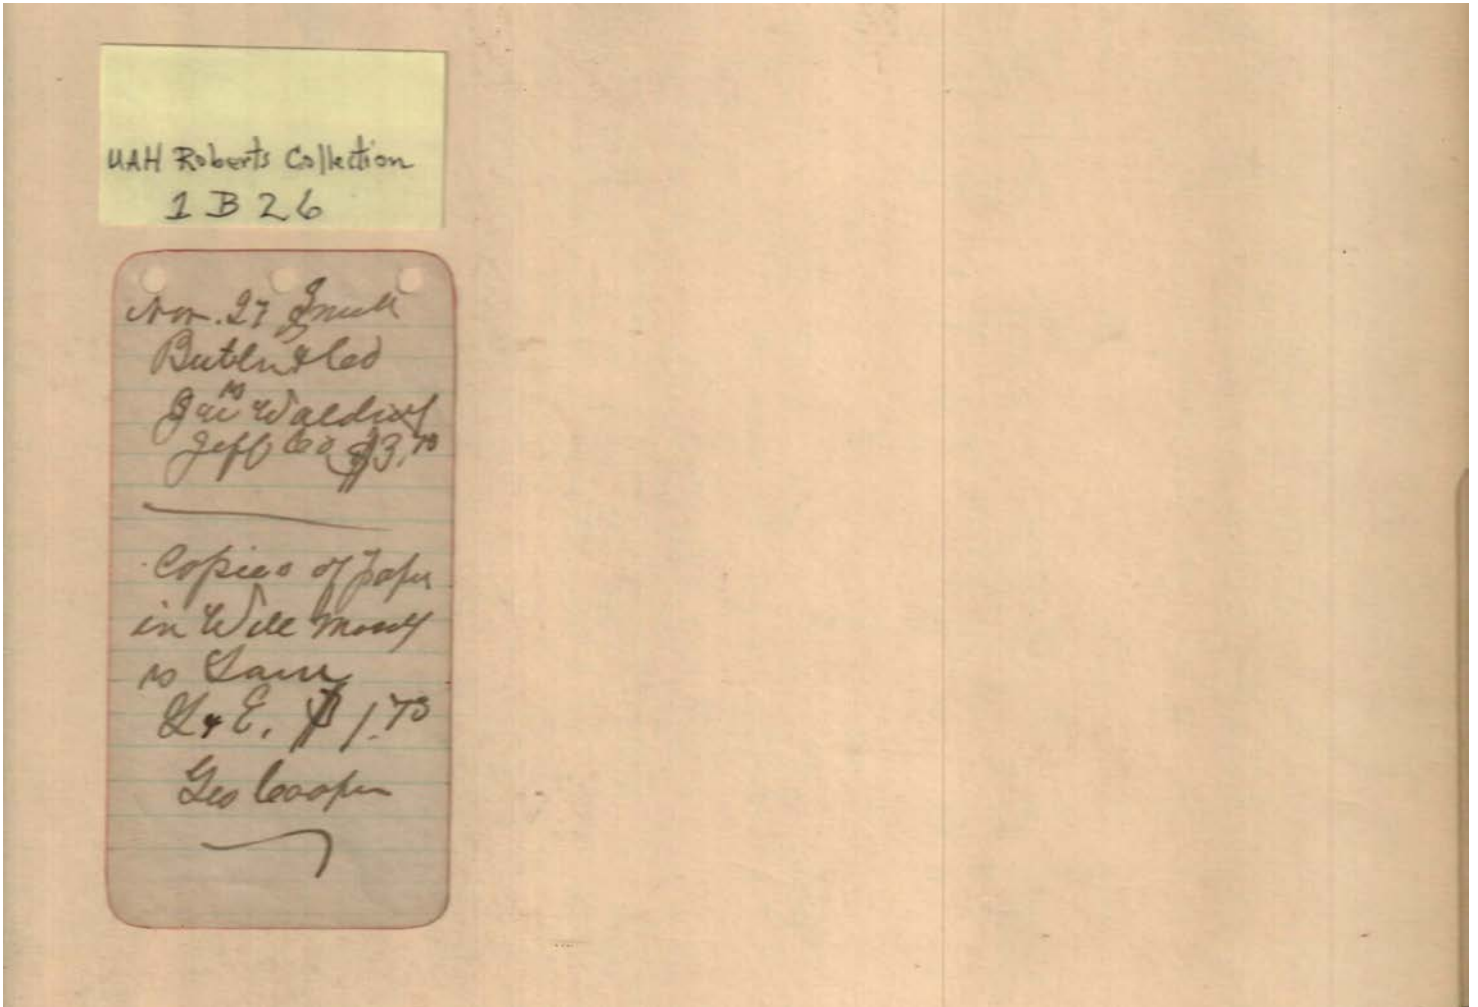 UAH Roberts Collection
1 B 26
Nov. 27 Smith
Butler & Co
vs Waldrop
Jeff Co $3.75
Copies of paper
in Will
vs
L & E. $1.75
Geo Cooper